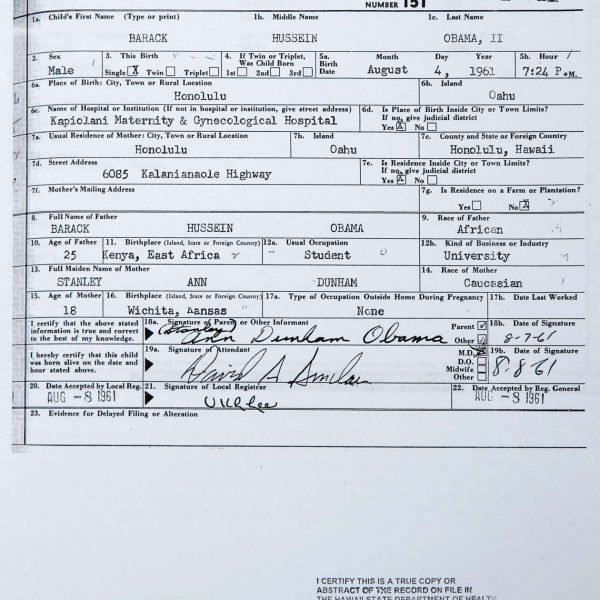 NUMBER 151
1a. Child's First Name (Type or print) 1b. Middle Name 1c. Last Name
BARACK HUSSEIN OBAMA, II
2. Sex 3. This Birth 4. If Twin or Triplet, Was Child Born 5a. Birth Date Month Day Year 5b. Hour
Male Single X Twin Triplet 1st 2nd 3rd August 4, 1961 7:24 P.M.
6a. Place of Birth: City, Town or Rural Location 6b. Island
Honolulu Oahu
6c. Name of Hospital or Institution (If not in hospital or institution, give street address) 6d. Is Place of Birth Inside City or Town Limits? If no, give judicial district
Kapiolani Maternity & Gynecological Hospital Yes X No
7a. Usual Residence of Mother: City, Town or Rural Location 7b. Island 7c. County and State or Foreign Country
Honolulu Oahu Honolulu, Hawaii
7d. Street Address 7e. Is Residence Inside City or Town Limits? If no, give judicial district
6085 Kalanianaole Highway Yes X No
7f. Mother's Mailing Address 7g. Is Residence on a Farm or Plantation?
Yes No X
8. Full Name of Father 9. Race of Father
BARACK HUSSEIN OBAMA African
10. Age of Father 11. Birthplace (Island, State or Foreign Country) 12a. Usual Occupation 12b. Kind of Business or Industry
25 Kenya, East Africa Student University
13. Full Maiden Name of Mother 14. Race of Mother
STANLEY ANN DUNHAM Caucasian
15. Age of Mother 16. Birthplace (Island, State or Foreign Country) 17a. Type of Occupation Outside Home During Pregnancy 17b. Date Last Worked
18 Wichita, Kansas None
I certify that the above stated information is true and correct to the best of my knowledge. 18a. Signature of Parent or Other Informant Parent Other 18b. Date of Signature
(Stanley) Ann Dunham Obama 8-7-61
I hereby certify that this child was born alive on the date and hour stated above. 19a. Signature of Attendant M.D. D.O. Midwife Other 19b. Date of Signature
David A Sinclair 8-8-61
20. Date Accepted by Local Reg. 21. Signature of Local Registrar 22. Date Accepted by Reg. General
AUG -8 1961 AUG -8 1961
23. Evidence for Delayed Filing or Alteration
I CERTIFY THIS IS A TRUE COPY OR
ABSTRACT OF THE RECORD ON FILE IN
THE HAWAII STATE DEPARTMENT OF HEALTH